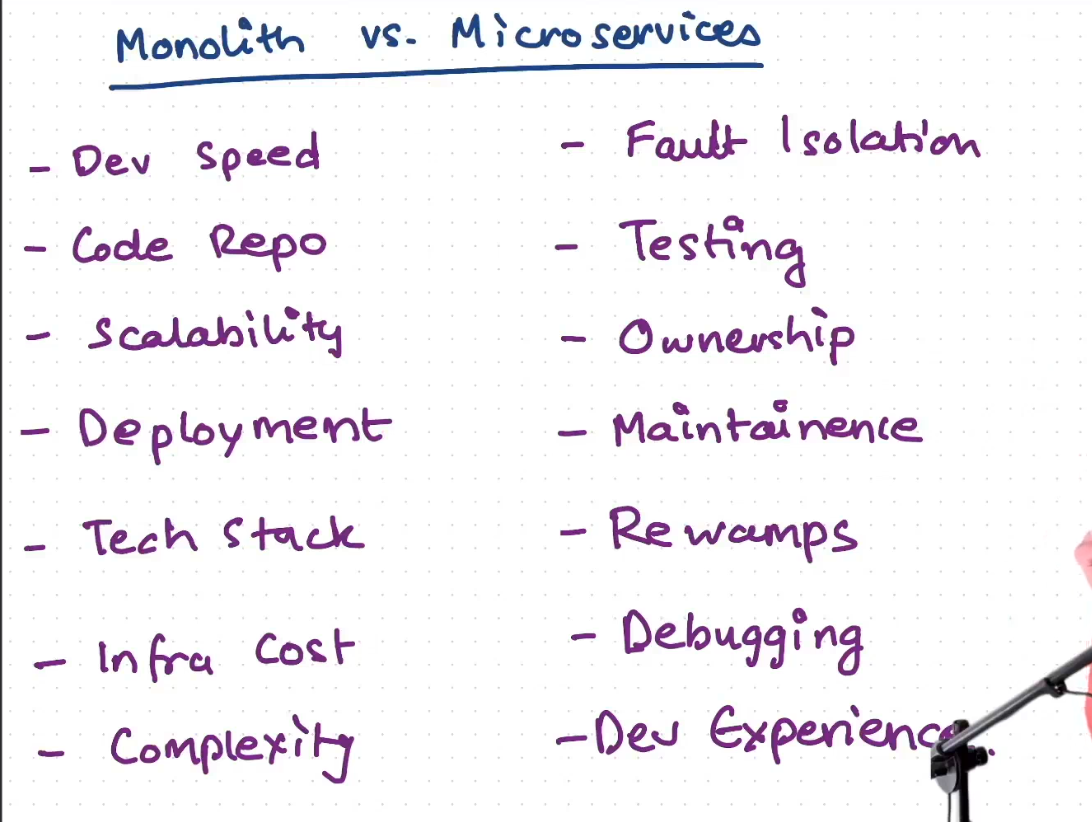 Monolith vs. Microservices
- Dev Speed
- Code Repo
- Scalability
- Deployment
- Tech Stack
- Infra Cost
- Complexity
- Fault Isolation
- Testing
- Ownership
- Maintainence
- Rewamps
- Debugging
- Dev Experience.